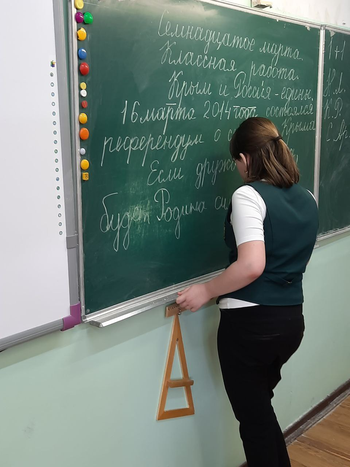 Семнадцатое марта.
Классная работа.
Крым и Россия - едины
16 марта 2014 состоялся
референдум о Крыма
Если
будет Родина
1+1